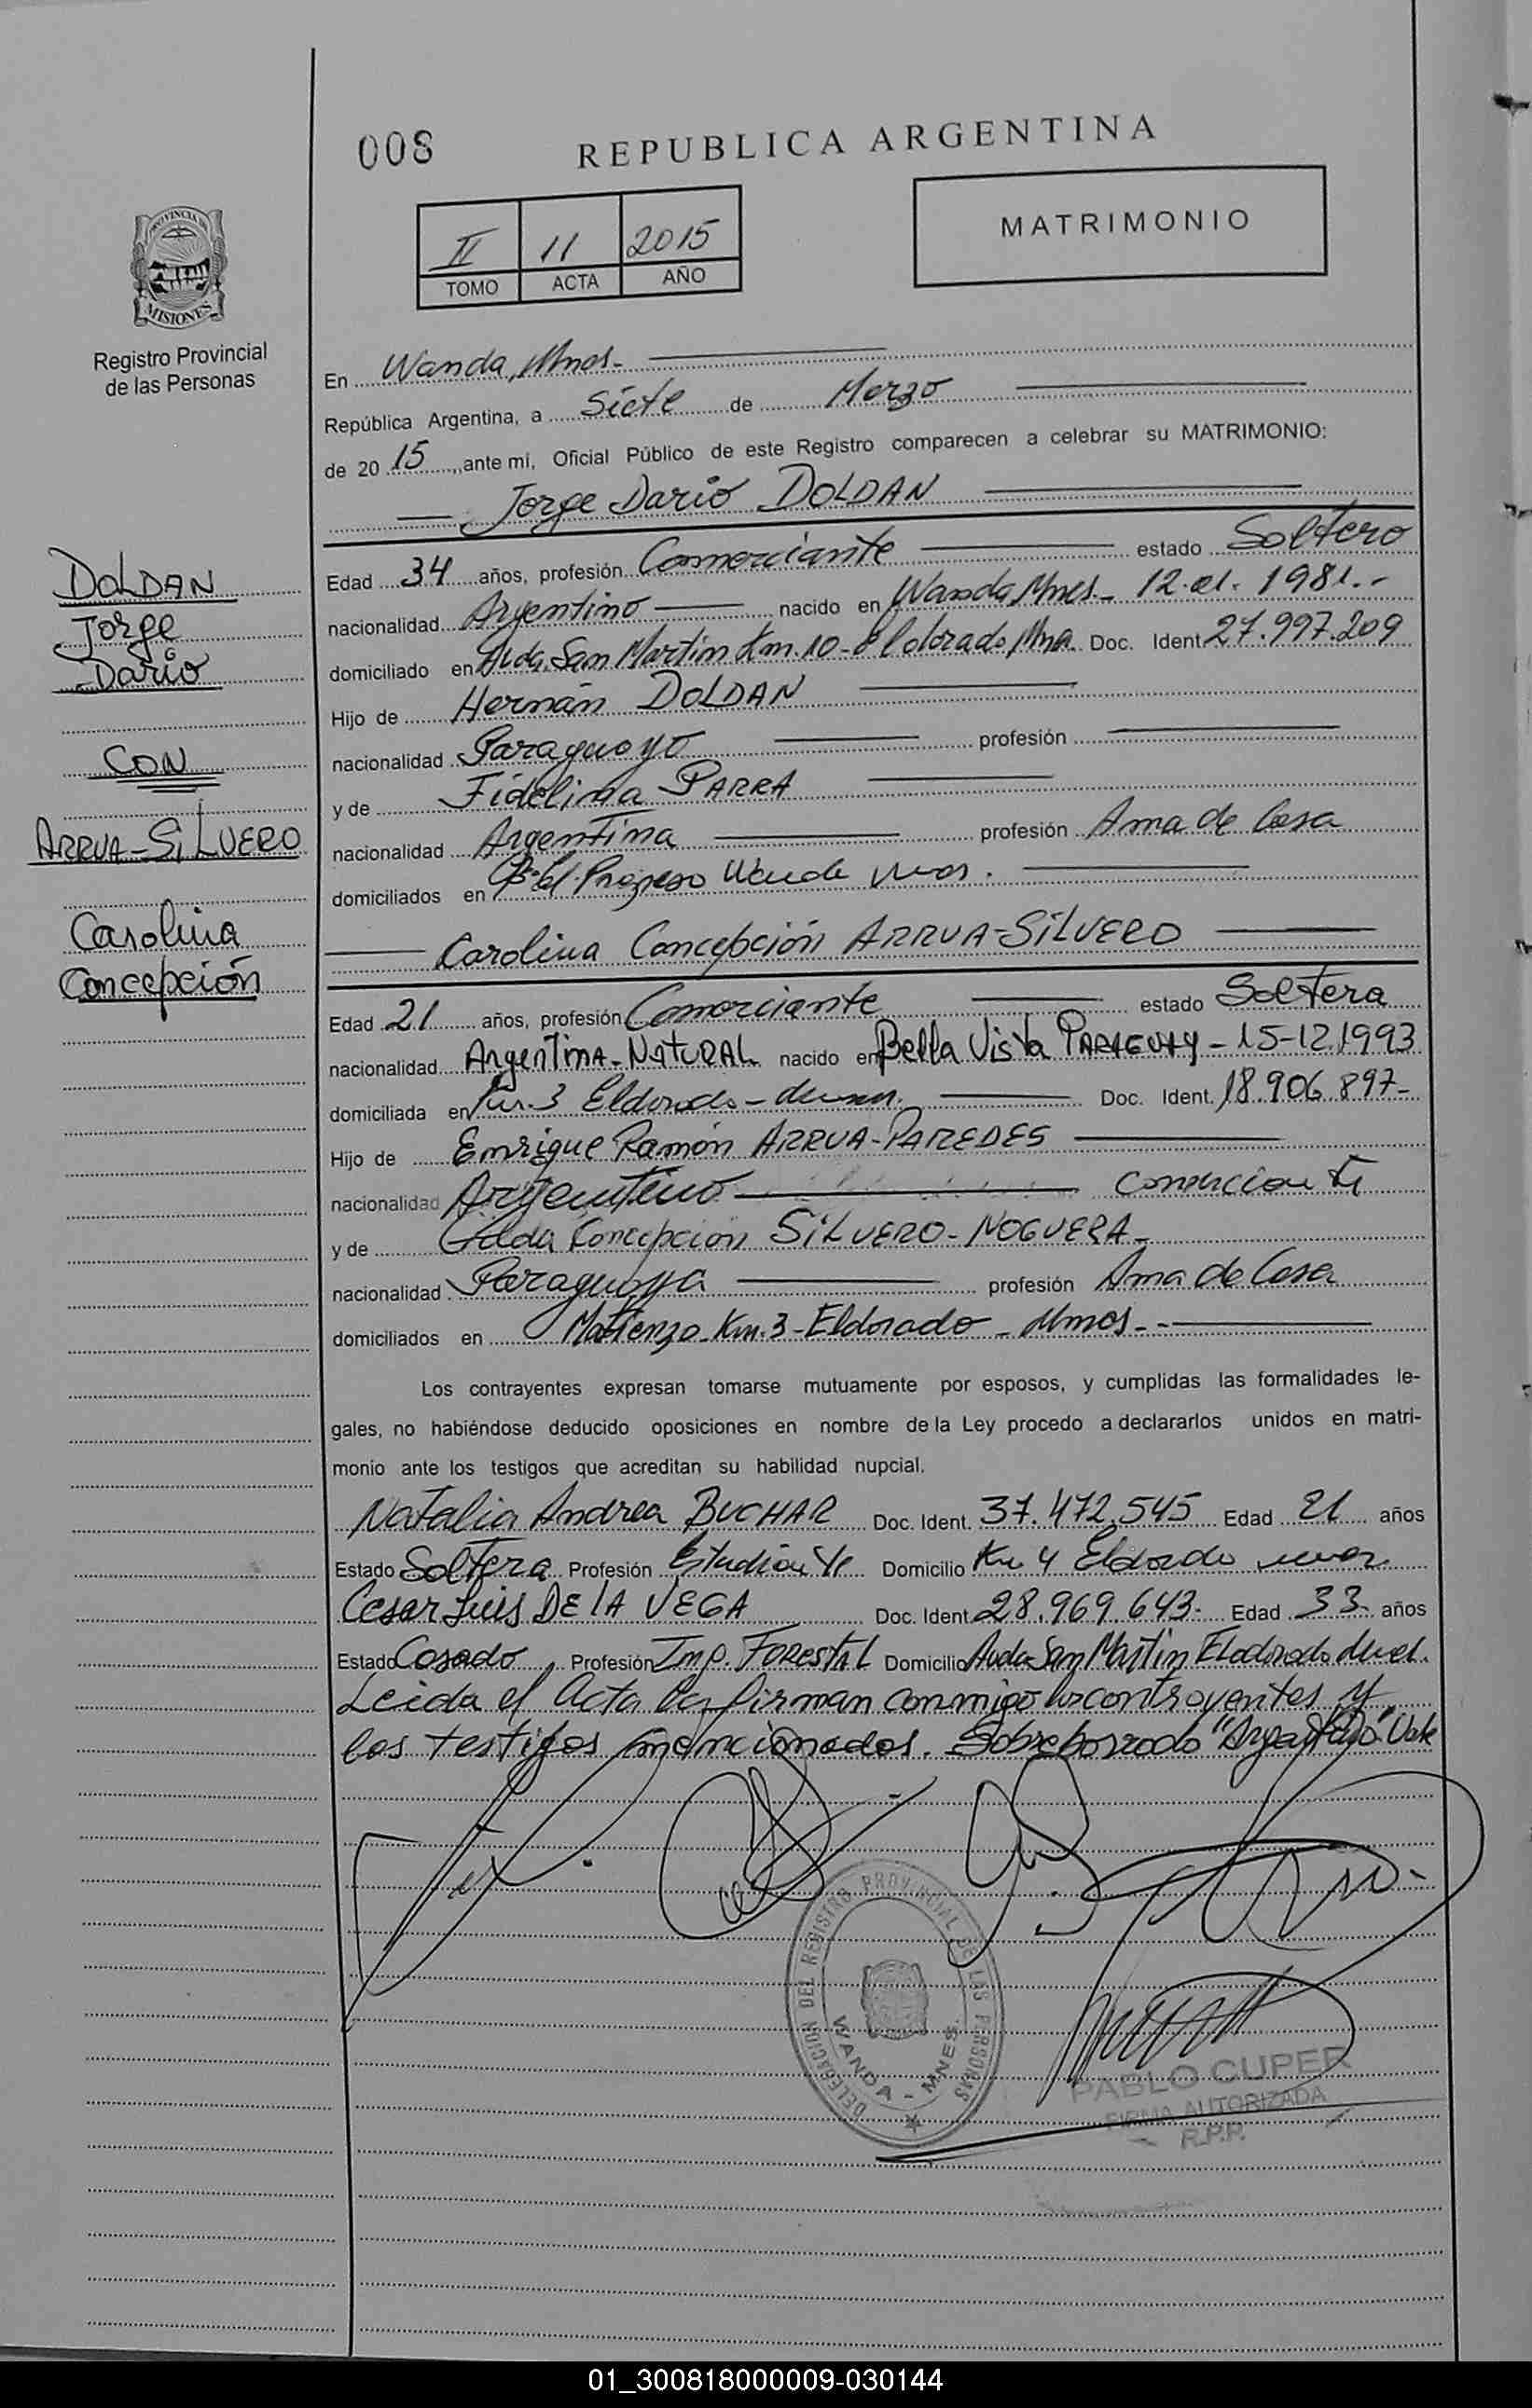 008
REPUBLICA ARGENTINA
MATRIMONIO
II 11 2015
TOMO ACTA AÑO
PROVINCIA DE
MISIONES
Registro Provincial
de las Personas
En Wanda, Mnes.-
República Argentina, a Siete de Marzo
de 20 15, ante mí, Oficial Público de este Registro comparecen a celebrar su MATRIMONIO:
Jorge Dario DOLDAN
DOLDAN
Jorge
Dario
CON
ARRUA-SILVERO
Carolina
Concepción
Edad 34 años, profesión Comerciante estado Soltero
nacionalidad Argentino nacido en Wanda, Mnes.- 12.01.1981.-
domiciliado en Avda. San Martin Km.10-Eldorado, Mna. Doc. Ident. 27.997.209
Hijo de Hernán DOLDAN
nacionalidad Paraguayo profesión
y de Fidelina PARRA
nacionalidad Argentina profesión Ama de Casa
domiciliados en Bº El Progreso Wanda Mnes.
Carolina Concepción ARRUA-SILVERO
Edad 21 años, profesión Comerciante estado Soltera
nacionalidad Argentina-NATURAL nacido en Bella Vista PARAGUAY - 15-12.1993
domiciliada en Km.3 Eldorado - Doc. Ident. 18.906.897-
Hijo de Enrique Ramón ARRUA-PAREDES
nacionalidad Argentino Comerciante
y de Concepción SILVERO-NOGUERA-
nacionalidad Paraguaya profesión Ama de Casa
domiciliados en Matienzo Km.3-Eldorado - Mnes--
Los contrayentes expresan tomarse mutuamente por esposos, y cumplidas las formalidades le-
gales, no habiéndose deducido oposiciones en nombre de la Ley procedo a declararlos unidos en matri-
monio ante los testigos que acreditan su habilidad nupcial.
Natalia Andrea BUCHAR Doc. Ident. 37.472.545 Edad 21 años
Estado Soltera Profesión Estudiante Domicilio Km 4 Eldorado
Cesar Luis DE LA VEGA Doc. Ident. 28.969.643- Edad 33 años
Estado Casado Profesión Imp. FORESTAL Domicilio Avda San Martin Eldorado Mnes.
Leida el Acta la firman conmigo los contrayentes y
los testigos mencionados. Sobreborrado "Argentino" Vale
DELEGACION DEL REGISTRO PROVINCIAL DE LAS PERSONAS
WANDA - MNES.
PABLO CUPER
FIRMA AUTORIZADA
R.P.P.
01_300818000009-030144